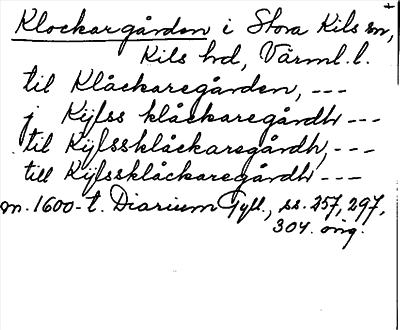 Klockargården i Stora Kils sn,
Kils hd, Värml. l.
til Klåckaregården, ---
j Kijlss klåckaregårdh ---
til Kijlssklåckaregårdh, ---
till Kijlssklåckaregårdh ---
m. 1600-t. Diarium Gyll., ss. 257, 297,
304. orig.